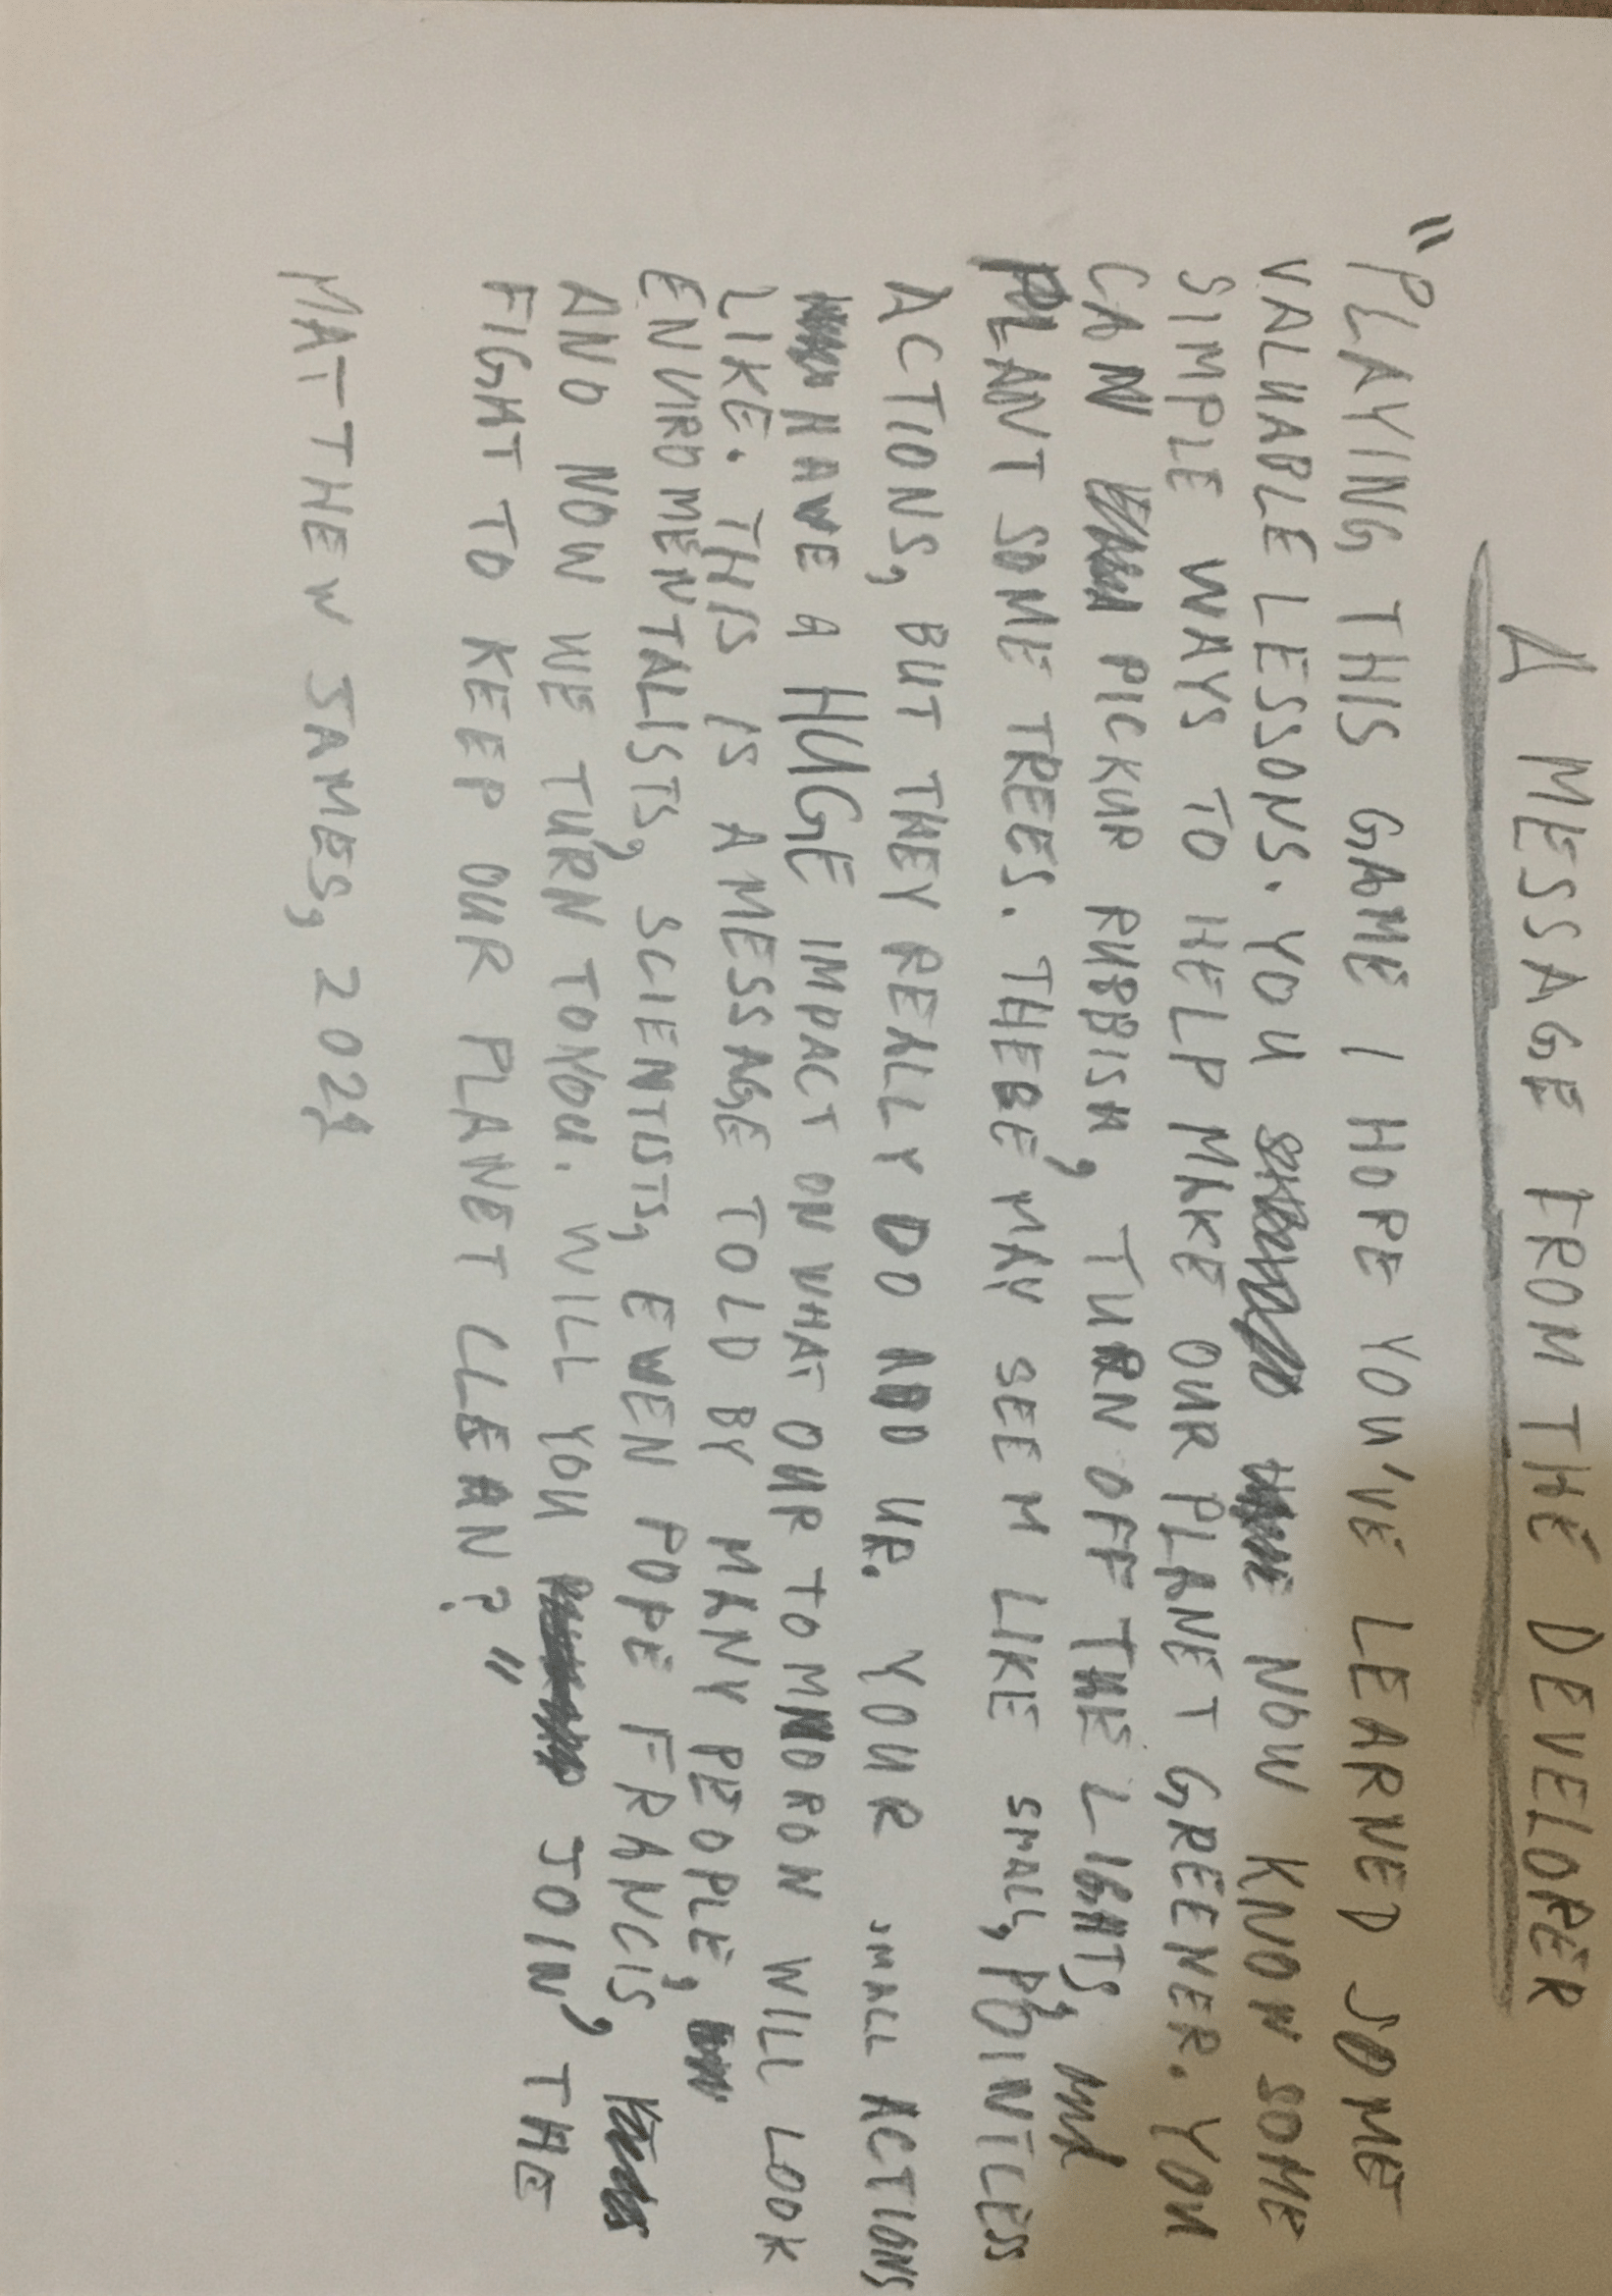 A MESSAGE FROM THE DEVELOPER
"PLAYING THIS GAME I HOPE YOU'VE LEARNED SOME
VALUABLE LESSONS. YOU NOW KNOW SOME
SIMPLE WAYS TO HELP MAKE OUR PLANET GREENER. YOU
CAN PICKUP RUBBISH, TURN OFF THE LIGHTS,
PLANT SOME TREES. THESE MAY SEEM LIKE SMALL, POINTLESS
ACTIONS, BUT THEY REALLY DO ADD UP. YOUR SMALL ACTIONS
HAVE A HUGE IMPACT ON WHAT OUR TOMMOROW WILL LOOK
LIKE. THIS IS A MESSAGE TOLD BY MANY PEOPLE,
ENVIROMENTALISTS, SCIENTISTS, EVEN POPE FRANCIS,
AND NOW WE TURN TO YOU. WILL YOU JOIN, THE
FIGHT TO KEEP OUR PLANET CLEAN?"
MATTHEW JAMES,